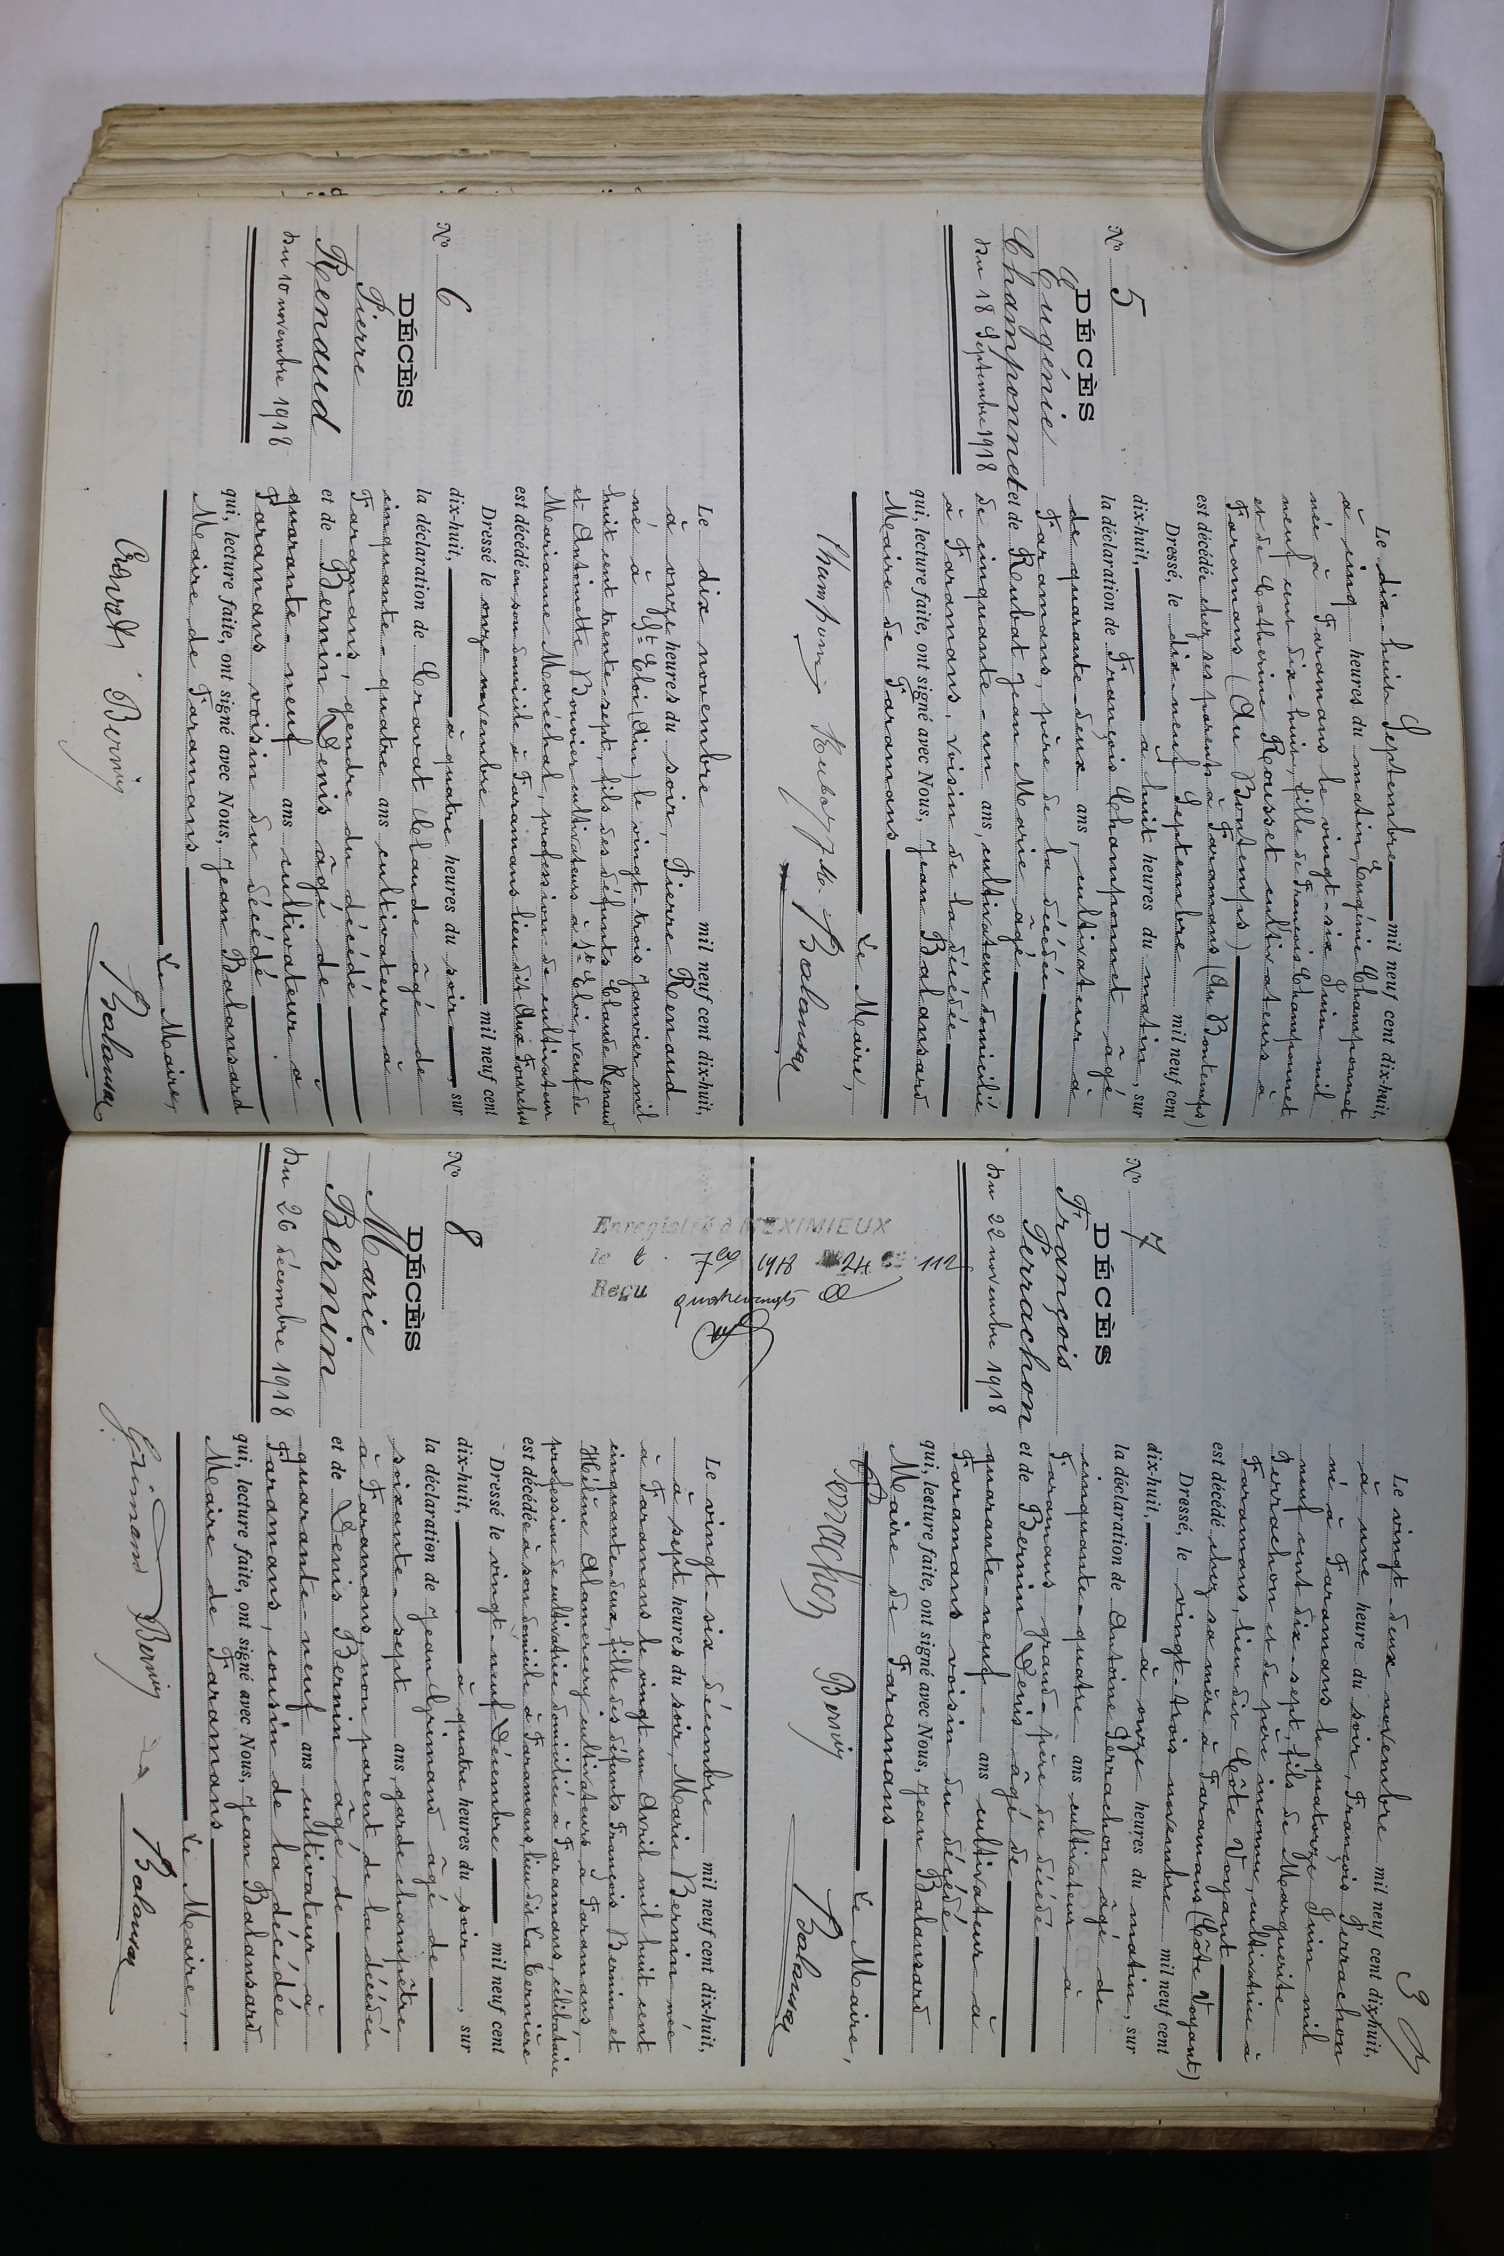 N° 5
DÉCÈS
Eugénie
Champonnet
du 18 Septembre 1918
Le dix-huit Septembre mil neuf cent dix-huit,
à cinq heures du matin, Eugénie Champonnet
née à Faramans le vingt-six Juin mil
neuf cent dix-huit, fille de François Champonnet
et de Catherine Rousset cultivateurs à
Faramans (Au Bontemps)
est décédée chez ses parents à Faramans (Au Bontemps)
Dressé, le dix-neuf Septembre mil neuf cent
dix-huit, à huit heures du matin, sur
la déclaration de François Champonnet âgé
de quarante-deux ans, cultivateur à
Faramans, père de la décédée
et de Reubat Jean Marie âgé
de cinquante-un ans, cultivateur domicilié
à Faramans, voisin de la décédée
qui, lecture faite, ont signé avec Nous, Jean Balansard
Maire de Faramans
Le Maire,
N° 6
DÉCÈS
Pierre
Renaud
du 10 novembre 1918
Le dix novembre mil neuf cent dix-huit,
à onze heures du soir, Pierre Renaud
né à St Eloi (Ain) le vingt-trois Janvier mil
huit cent trente-sept, fils des défunts Claude Renaud
et Antoinette Bouvier cultivateurs à St Eloi, veuf de
Marianne Maréchal, profession de cultivateur
est décédé en son domicile à Faramans lieu dit Aux Fourches
Dressé le onze novembre mil neuf cent
dix-huit, à quatre heures du soir, sur
la déclaration de Cravat Claude âgé de
cinquante-quatre ans cultivateur à
Faramans, gendre du décédé
et de Bernin Denis âgé de
quarante-neuf ans cultivateur à
Faramans voisin du décédé
qui, lecture faite, ont signé avec Nous, Jean Balansard
Maire de Faramans
Le Maire,
Bernin
9
N° 7
DÉCÈS
François
Perrachon
du 22 novembre 1918
Le vingt-deux novembre mil neuf cent dix-huit,
à une heure du soir, François Perrachon
né à Faramans le quatorze Juin mil
neuf cent dix-sept, fils de Marguerite
Perrachon et de père inconnu, cultivatrice à
Faramans, lieu dit Côte Voyant
est décédé chez sa mère à Faramans (Côte Voyant)
Dressé, le vingt-trois novembre mil neuf cent
dix-huit, à onze heures du matin, sur
la déclaration de Antoine Perrachon âgé de
cinquante-quatre ans cultivateur à
Faramans grand-père du décédé
et de Bernin Denis âgé de
quarante-neuf ans cultivateur à
Faramans voisin du décédé
qui, lecture faite, ont signé avec Nous, Jean Balansard
Maire de Faramans
Le Maire,
Bernin
Enregistré à MEXIMIEUX
le 1918 24 112
Reçu
N° 8
DÉCÈS
Marie
Bernin
du 26 décembre 1918
Le vingt-six décembre mil neuf cent dix-huit,
à sept heures du soir, Marie Bernin née
à Faramans le vingt-un Avril mil huit cent
cinquante-deux, fille des défunts François Bernin et
Hélène Alamercery cultivateurs à Faramans,
profession de cultivatrice domiciliée à Faramans, célibataire
est décédée à son domicile à Faramans, lieu dit La Cernière
Dressé le vingt-neuf Décembre mil neuf cent
dix-huit, à quatre heures du soir, sur
la déclaration de Jean Grimand âgé de
soixante-sept ans, garde champêtre
à Faramans, non parent de la décédée
et de Denis Bernin âgé de
quarante-neuf ans cultivateur à
Faramans, cousin de la décédée
qui, lecture faite, ont signé avec Nous, Jean Balansard
Maire de Faramans
Le Maire,
Grimand Bernin